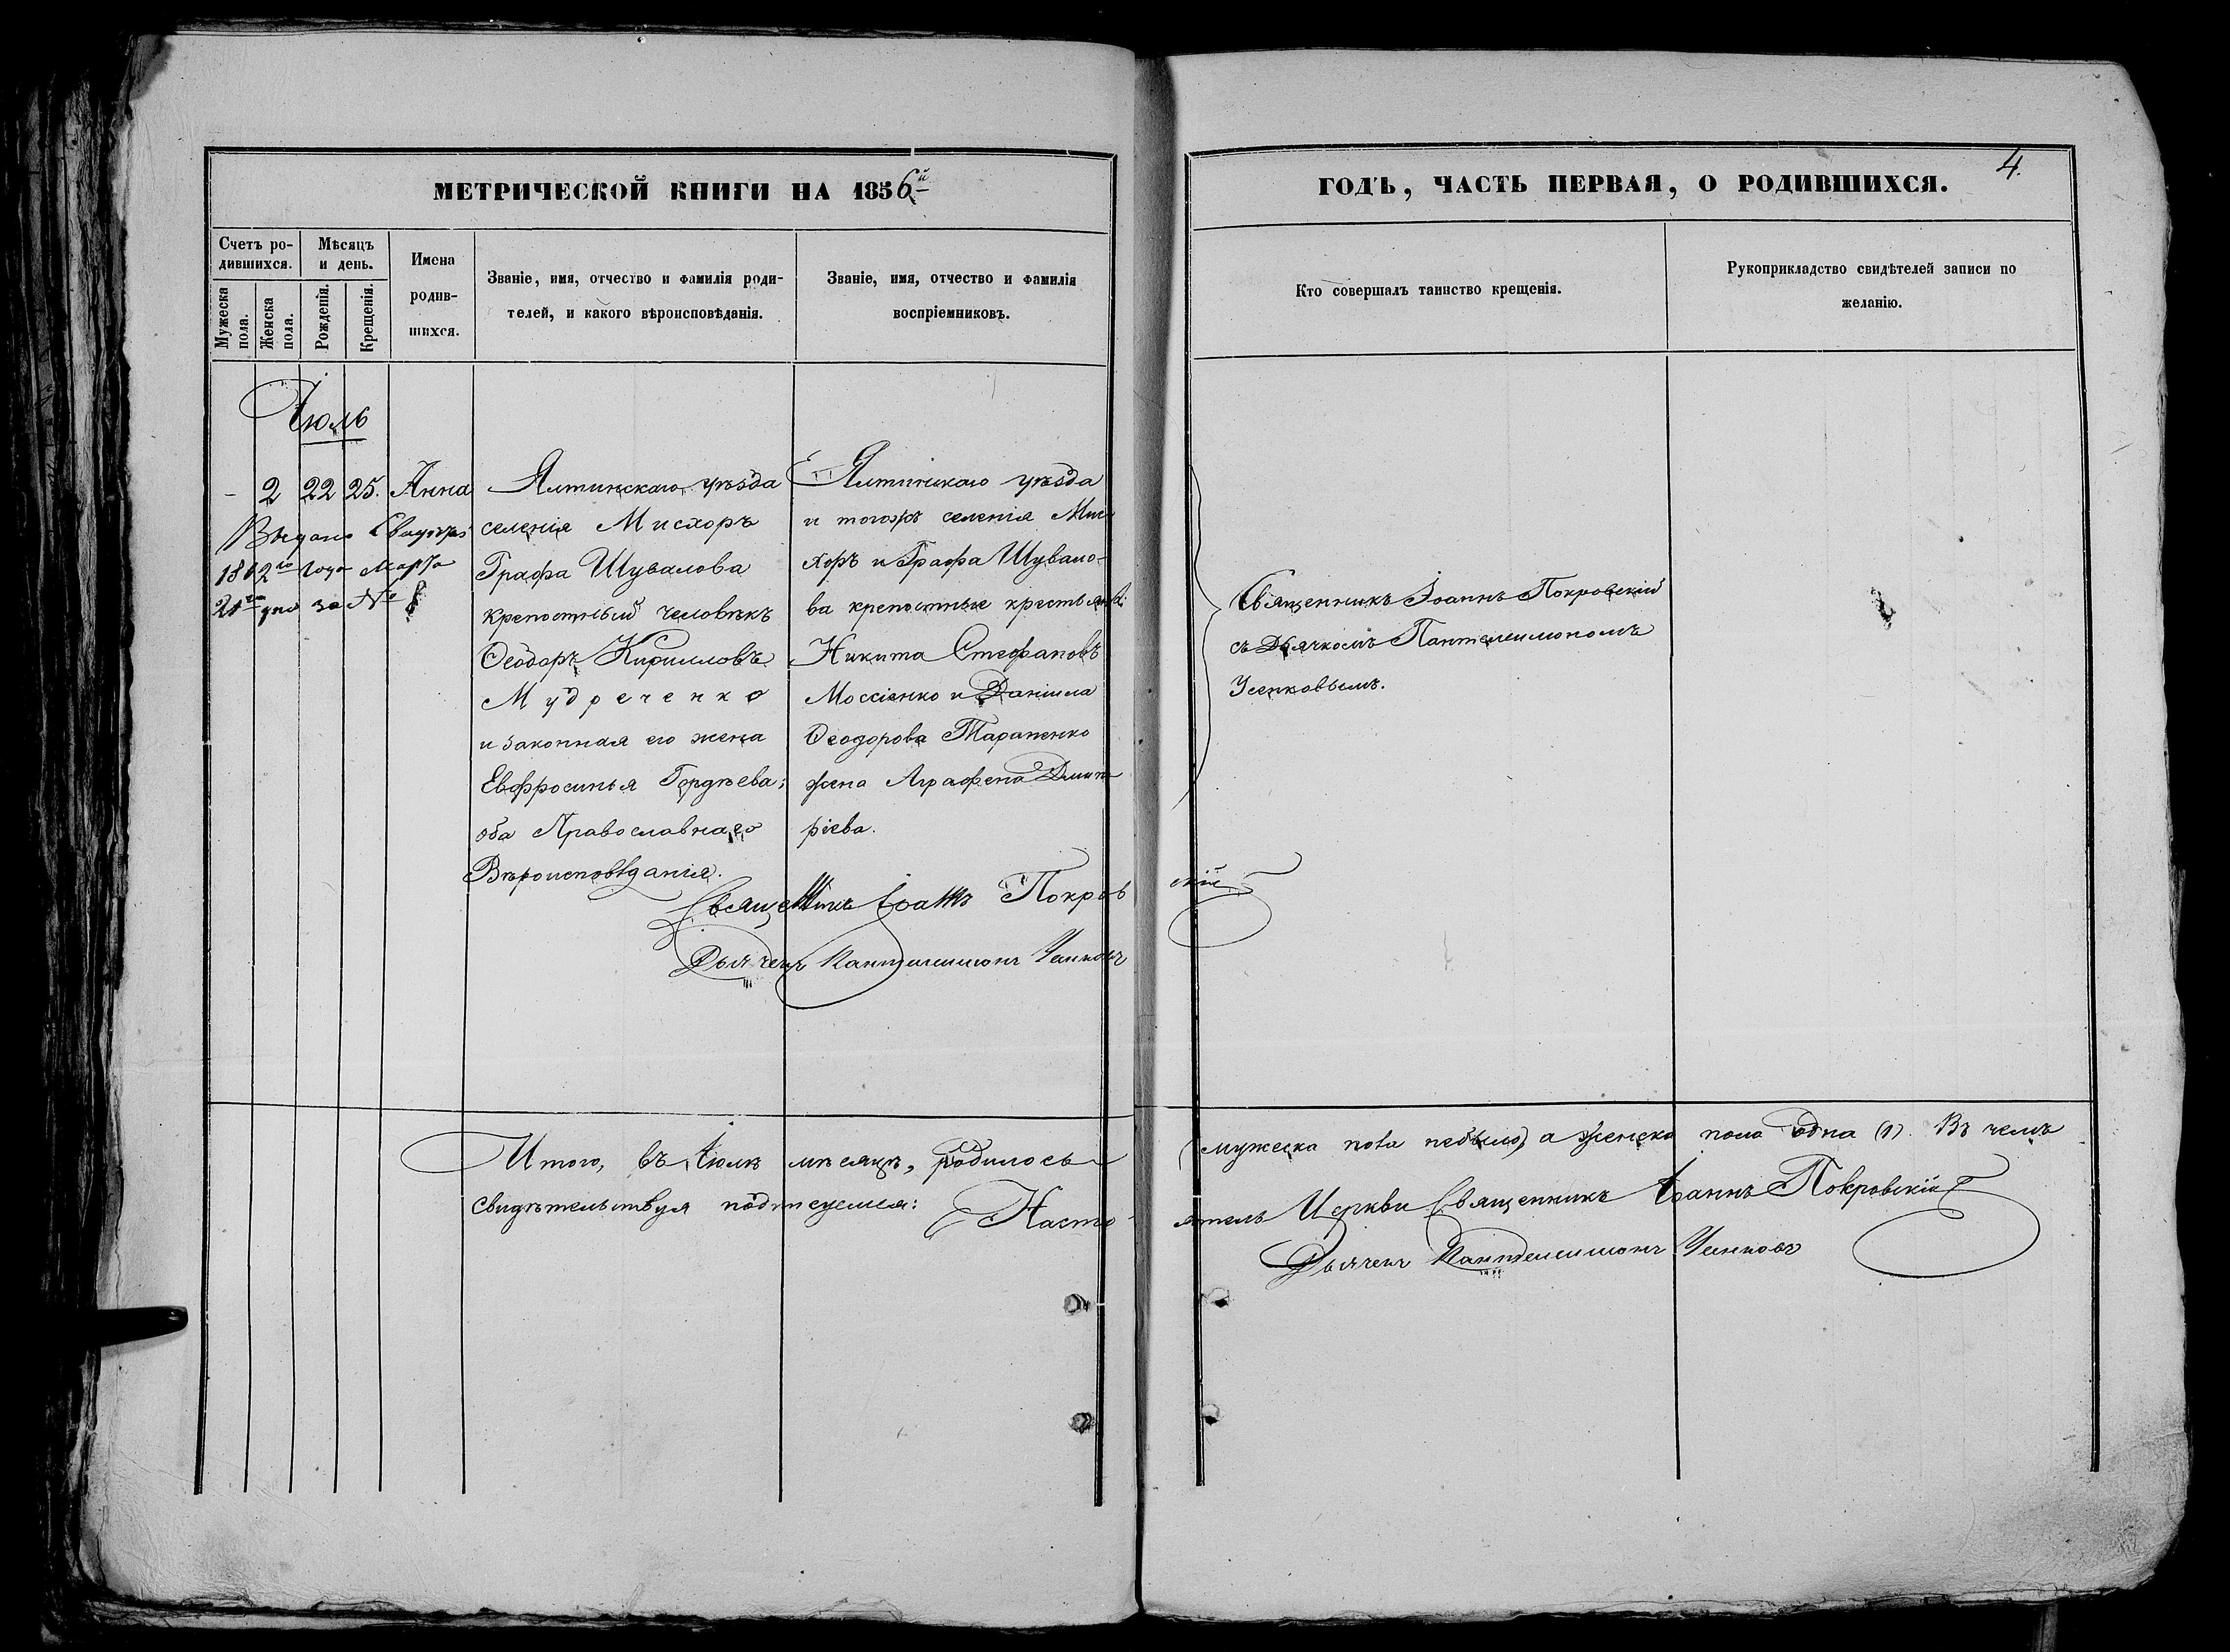 МЕТРИЧЕСКОЙ КНИГИ НА 1856й
Счетъ ро-
дившихся.
Мужеска
пола.
Женска
пола.
Мѣсяцъ
и день.
Рожденія.
Крещенія.
Имена
родив-
шихся.
Званіе, имя, отчество и фамилія роди-
телей, и какого вѣроисповѣданія.
Званіе, имя, отчество и фамилія
воспріемниковъ.
Іюль
- 2 22 25. Анна
Выдано
1862го года Марта
21го дня за №
Ялтинскаго уѣзда
селенія Мисхоръ
Графа Шувалова
крепостный человѣкъ
Ѳеодоръ Кирилловъ
Мудреченко
и законная его жена
Евфросинья Гордѣева;
оба Православнаго
Вѣроисповѣданія.
Ялтинскаго уѣзда
и тогожъ селенія Мис-
хоръ и Графа Шувало-
ва крепостные крестьяне:
Никита Стефановъ
Моссіенко и Даніила
Ѳеодорова Тараненко
жена Аграфена Димит-
ріева.
Священникъ Іоаннъ Покровскій
Дьячекъ Пантелеимонъ Усенковъ
Итого, въ Іюлѣ мѣсяцѣ, родилось
свидѣтельствуя подписуемся: Насто-
4.
ГОДЪ, ЧАСТЬ ПЕРВАЯ, О РОДИВШИХСЯ.
Кто совершалъ таинство крещенія.
Рукоприкладство свидѣтелей записи по
желанію.
Священникъ Іоаннъ Покровскій
съ Дьячкомъ Пантелеимономъ
Усенковымъ.
(мужеска пола небыло) а женска пола одна (1). Въ чемъ
ятель Церкви Священникъ Іоаннъ Покровскій
Дьячекъ Пантелеимонъ Усенковъ